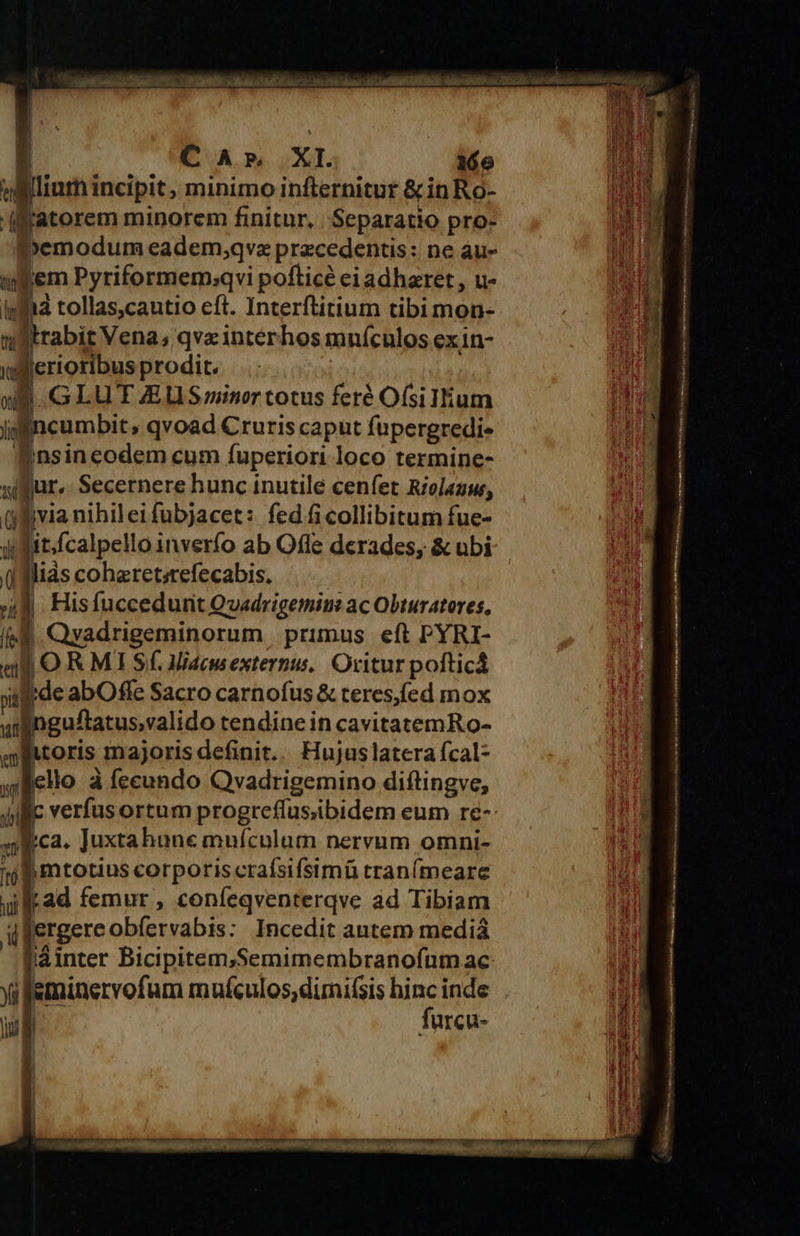 CAP. XI. 16e
lium incipit, minimo inſternitur & in Ro-
tatorem minorem finitur. Separatio pro-
emodum eadem, qvæ præcedentis: ne au-
em Pyriformem, qvi poſticè ei adhæret, u-
nà tollas, cautio eſt. Interſtitium tibi mon-
trabit Vena, qvæ inter hos muſculos ex in-
erioribus prodit.
GLUTÆUS minor totus ferè Oſsi Ilium
incumbit, qvoad Cruris caput ſupergredi-
ens in eodem cum ſuperiori loco termine-
ur. Secernere hunc inutile cenſet Riolanus,
via nihil ei ſubjacet: ſed ſi collibitum fue-
it, ſcalpello inverſo ab Oſſe derades, & ubi
liàs cohæret, reſecabis.
His ſuccedunt Qvadrigemini ac Obturatores.
Qvadrigeminorum primus eſt PYRI-
FORMIS ſ. Iliacus externus. Oritur poſticâ
de ab Oſſe Sacro carnoſus & teres, ſed mox
nguſtatus, valido tendine in cavitatem Ro-
toris majoris definit. Hujus latera ſcal-
ello à ſecundo Qvadrigemino diſtingve,
c verſus ortum progreſſus, ibidem eum re-
ca. Juxta hunc muſculum nervum omni-
m totius corporis craſsiſsimū tranſmeare
ad femur, conſeqventerqve ad Tibiam
ergere obſervabis: Incedit autem mediâ
iâ inter Bicipitem, Semimembranoſum ac
eminervoſum muſculos, dimiſsis hinc inde
furcu-